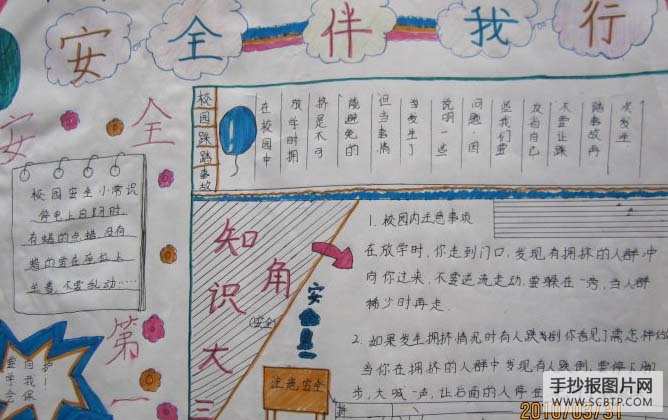 安全伴我行
安全第一
校园安全小常识
停电上自习时
有蜡的点蜡没有
蜡的要在座位上
坐着,不要乱动……
要学会
自我保
护!
校园踩踏事故
在校园中
放学时拥
挤是不可
能避免的
但当事情
当发生了
说明一些
问题,因
我们要
自己
不要让踩
踏事故再
次发生
知识大三
角
(安全)
安全
注意安全
1.校园内注意事项
在放学时,你走到门口,发现有拥挤的人群冲
向你过来,不要逆流走动,要躲在一旁,当人群
稀少时再走.
2.如果发生拥挤情况时有人跌倒你看见了需怎样
当你在拥挤的人群中发现有人跌倒,要停下脚
步,大喊一声,让后面的人停在
手抄报图片网
WWW.SCBTP.COM